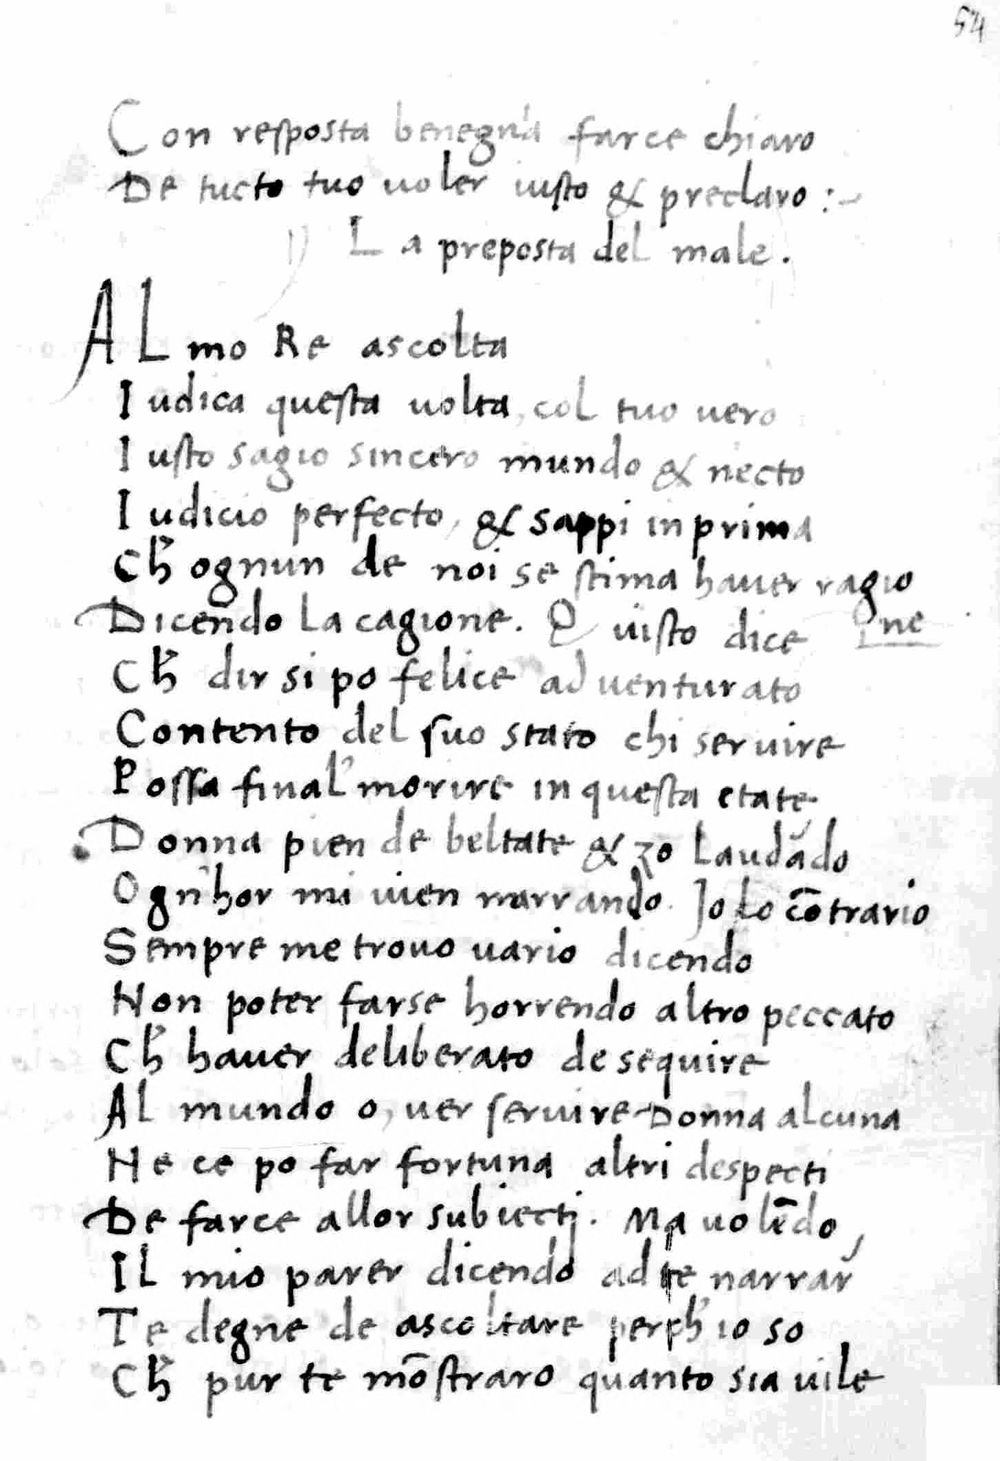 54
Con resposta benegna farce chiaro
De tucto tuo uoler iusto & preclaro :~
La preposta del male.
ALmo Re ascolta
Iudica questa uolta, col tuo uero
Iusto sagio sincero mundo & necto
Iudicio perfecto, & sappi in prima
Ch̃ ognun de noi se stima hauer ragio
ne
Dicendo la cagione. Q uisto dice
Ch̃ dir si po felice aduenturato
Contento del suo stato chi seruire
Possa final' morire in questa etate
Donna pien de beltate & zo laudado
Ogn'hor mi uien narrando. Io lo cōtrario
Sempre me trouo uario dicendo
Non poter farse horrendo altro peccato
Ch̃ hauer deliberato de sequire
Al mundo o, uer seruire Donna alcuna
Ne ce po far fortuna altri despecti
De farce allor subiecti. Ma uolēdo
Il mio parer dicendo ad te narrar
Te degne de ascoltare perch' io so
Ch̃ pur te mōstraro quanto sia uile